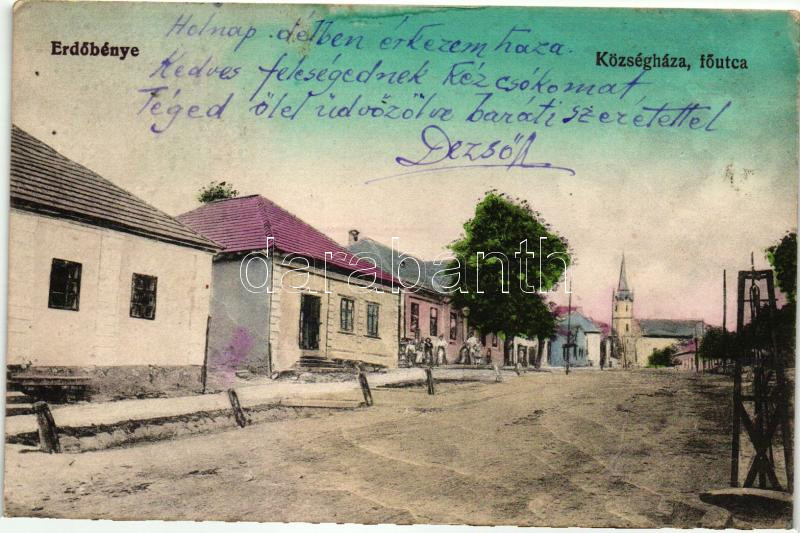 Holnap délben érkezem haza.
Erdőbénye
Községháza, főutca
Kedves feleségednek kézcsókomat
Téged ölel üdvözölve baráti szeretettel
Dezső
darabanth